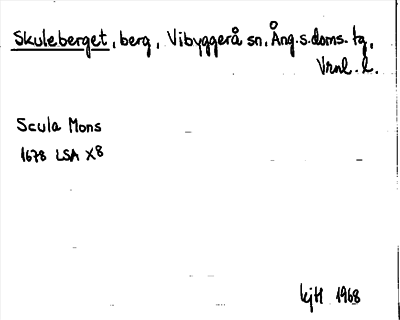 Skuleberget, berg, Vibyggerå sn, Ång.s.doms.tg,
Vrnl. l.
Scula Mons
1678 LSA X8
kjH 1968